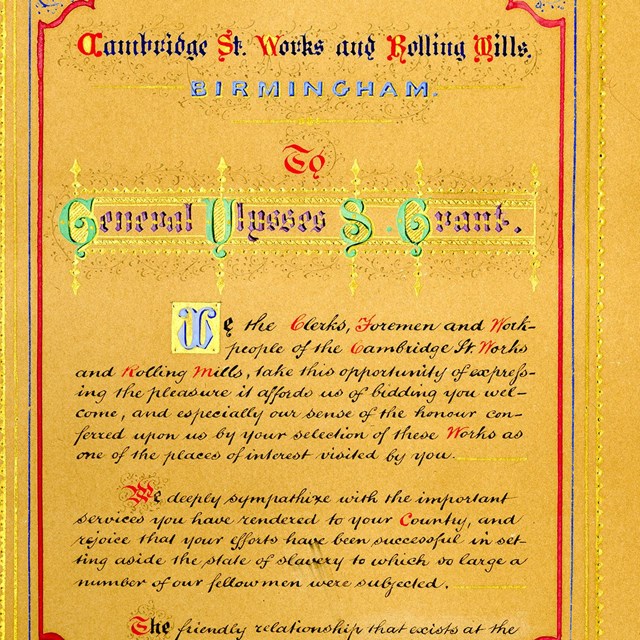 Cambridge St. Works and Rolling Mills,
BIRMINGHAM.
To
General Ulysses S. Grant.
We the Clerks, Foremen and Work-
people of the Cambridge St. Works
and Rolling Mills, take this opportunity of express-
ing the pleasure it affords us of bidding you wel-
come, and especially our sense of the honour con-
ferred upon us by your selection of these Works as
one of the places of interest visited by you.
We deeply sympathize with the important
services you have rendered to your Country, and
rejoice that your efforts have been successful in set-
ting aside the state of slavery to which so large a
number of our fellowmen were subjected.
The friendly relationship that exists at the